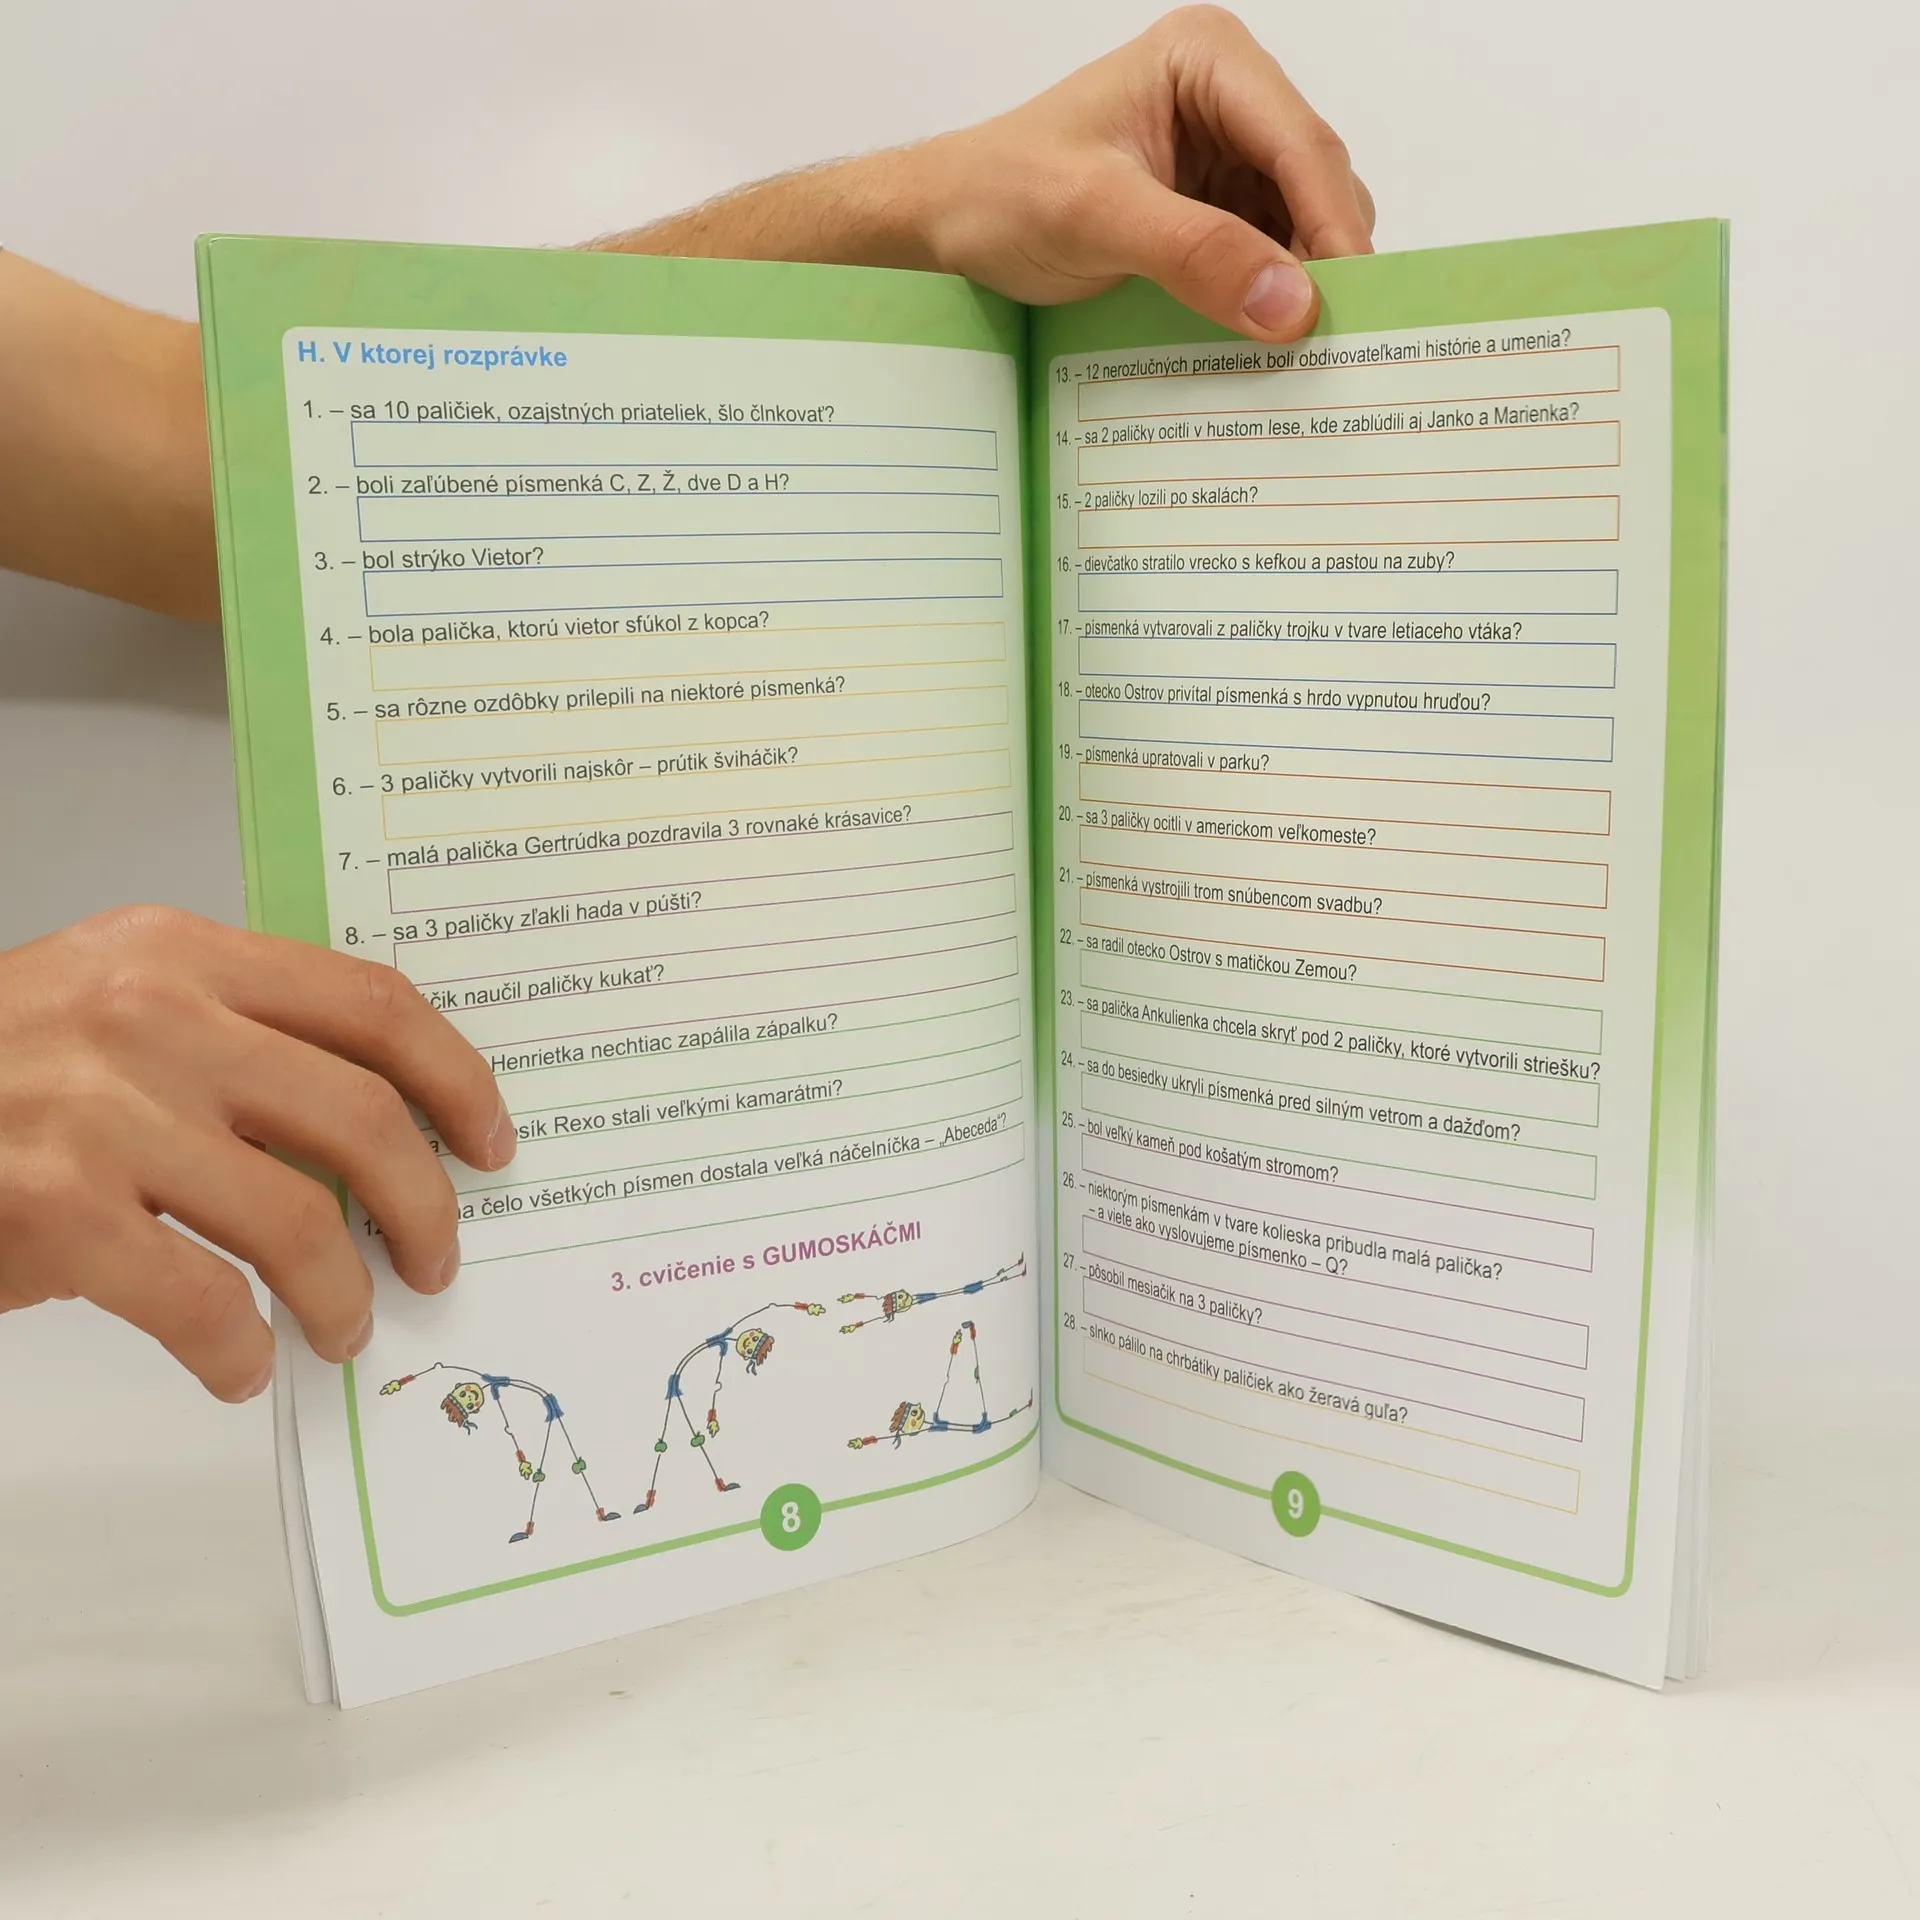 H. V ktorej rozprávke
1. – sa 10 paličiek, ozajstných priateliek, šlo člnkovať?
2. – boli zaľúbené písmenká C, Z, Ž, dve D a H?
3. – bol strýko Vietor?
4. – bola palička, ktorú vietor sfúkol z kopca?
5. – sa rôzne ozdôbky prilepili na niektoré písmenká?
6. – 3 paličky vytvorili najskôr – prútik šviháčik?
7. – malá palička Gertrúdka pozdravila 3 rovnaké krásavice?
8. – sa 3 paličky zľakli hada v púšti?
naučil paličky kukať?
Henrietka nechtiac zapálila zápalku?
Rexo stali veľkými kamarátmi?
čelo všetkých písmen dostala veľká náčelníčka – „Abeceda"?
3. cvičenie s GUMOSKÁČMI
8
13. – 12 nerozlučných priateliek boli obdivovateľkami histórie a umenia?
14. – sa 2 paličky ocitli v hustom lese, kde zablúdili aj Janko a Marienka?
15. – 2 paličky lozili po skalách?
16. – dievčatko stratilo vrecko s kefkou a pastou na zuby?
17. – písmenká vytvarovali z paličky trojku v tvare letiaceho vtáka?
18. – otecko Ostrov privítal písmenká s hrdo vypnutou hruďou?
19. – písmenká upratovali v parku?
20. – sa 3 paličky ocitli v americkom veľkomeste?
21. – písmenká vystrojili trom snúbencom svadbu?
22. – sa radil otecko Ostrov s matičkou Zemou?
23. – sa palička Ankulienka chcela skryť pod 2 paličky, ktoré vytvorili striešku?
24. – sa do besiedky ukryli písmenká pred silným vetrom a dažďom?
25. – bol veľký kameň pod košatým stromom?
26. – niektorým písmenkám v tvare kolieska pribudla malá palička?
– a viete ako vyslovujeme písmenko – Q?
27. – pôsobil mesiačik na 3 paličky?
28. – slnko pálilo na chrbátiky paličiek ako žeravá guľa?
9